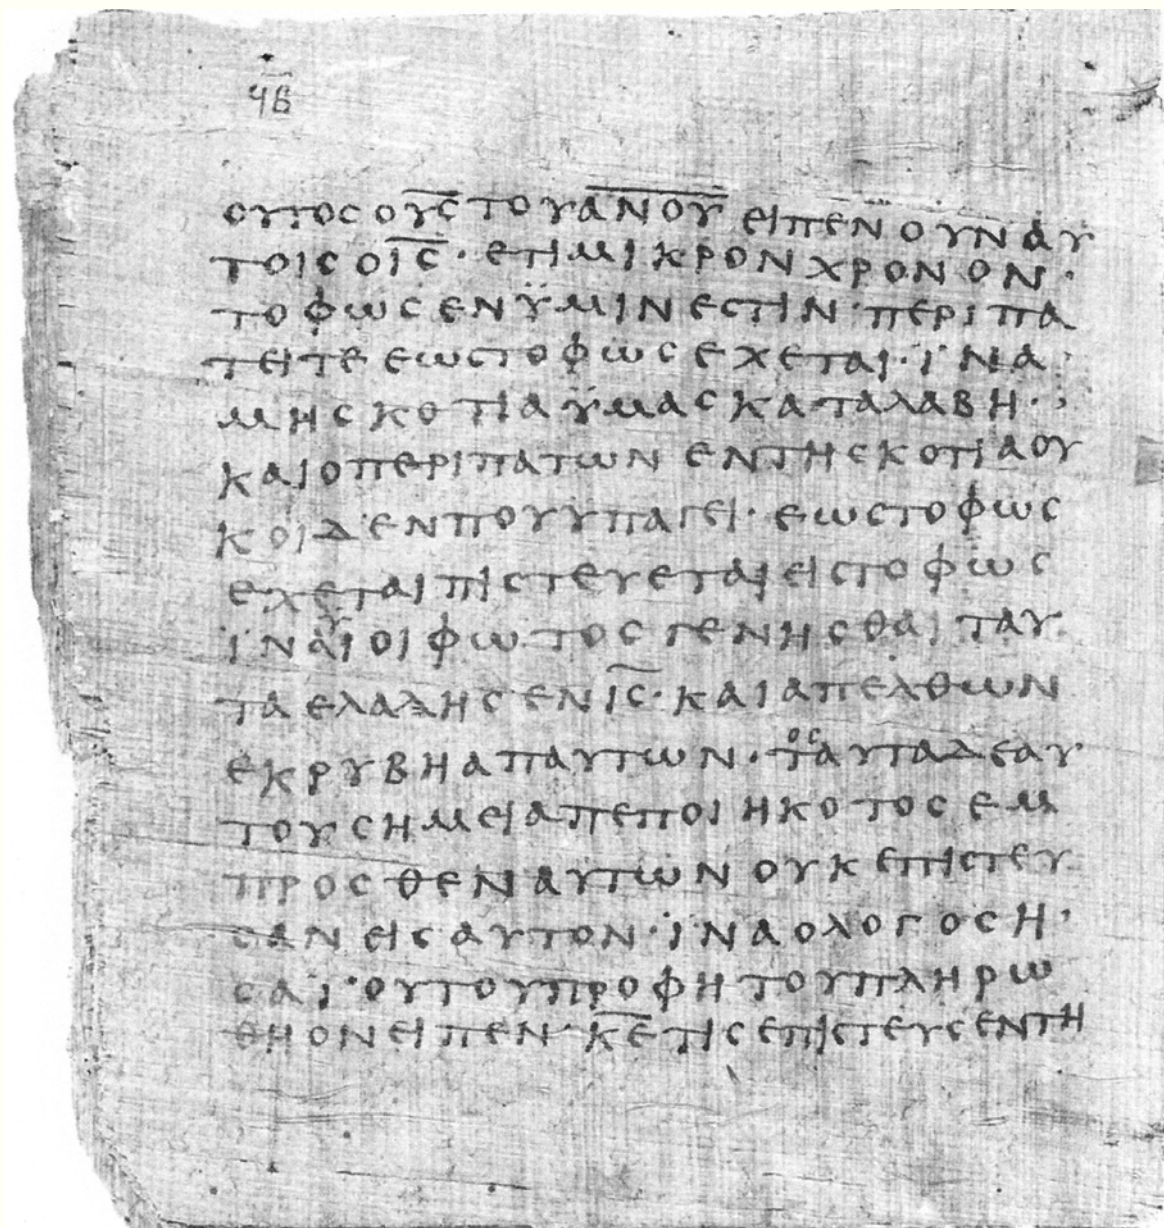 ϥβ
ουτος ο υ̅ς̅ του α̅ν̅ο̅υ̅ ειπεν ουν αυ
τοις ο ι̅ς̅· ετι μικρον χρονον·
το φως εν ϋμιν εστιν· περιπα
τειτε εως το φως εχεται· ϊνα
μη σκοτια ϋμας καταλαβη·
και ο περιπατων εν τη σκοτια ου
κ οιδεν που ϋπαγει· εως το φως
εχεται πιστευεται εις το φως
ϊνα ϋιοι φωτος γενησθαι ταυ
τα ελαλησεν ι̅ς̅· και απελθων
εκρυβη απ αυτων· τοσαυτα δε αυ
του σημεια πεποιηκοτος εμ
προσθεν αυτων ουκ επιστευ
σαν εις αυτον· ϊνα ο λογος η
σαϊου του προφητου πληρω
θη ον ειπεν· κ̅ε̅ τις επιστευσεν τη